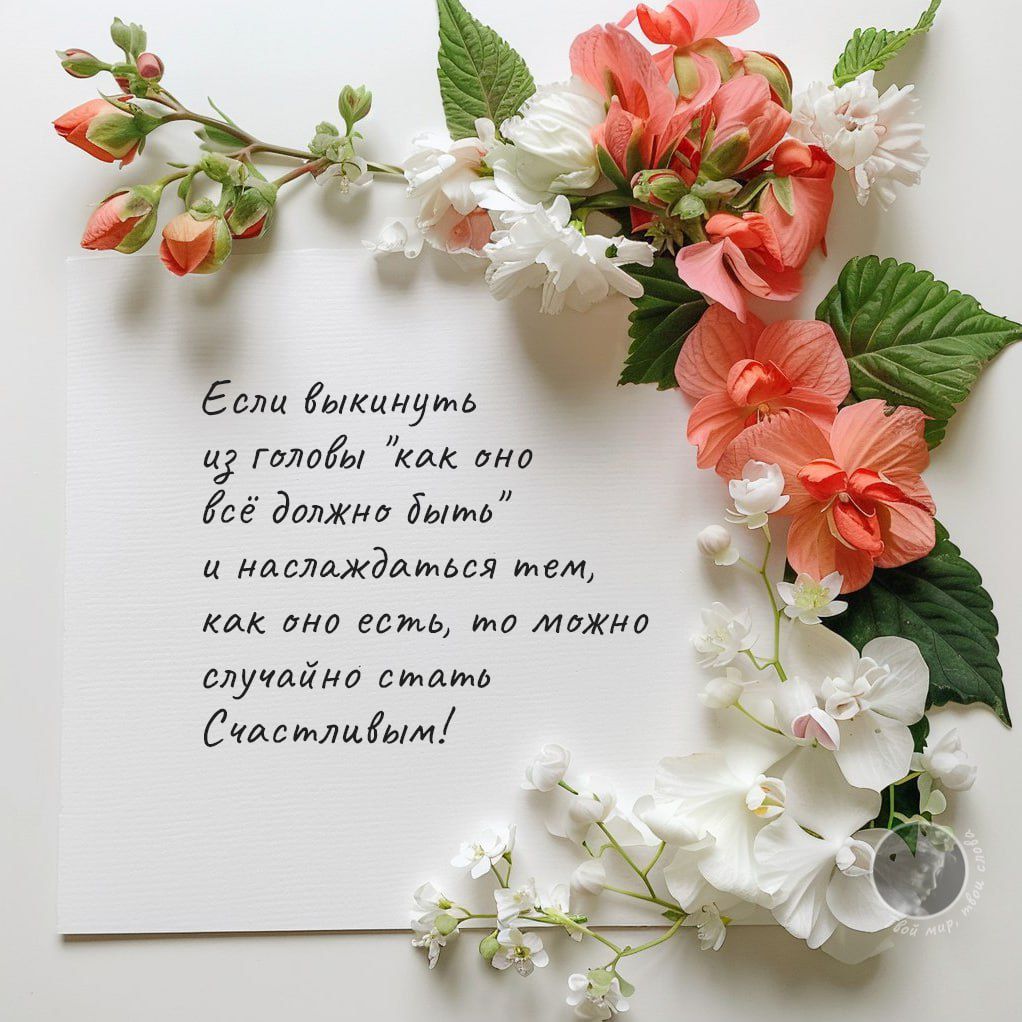 Если выкинуть
из головы "как оно
всё должно быть"
и наслаждаться тем,
как оно есть, то можно
случайно стать
Счастливым!
твой мир, твои слова